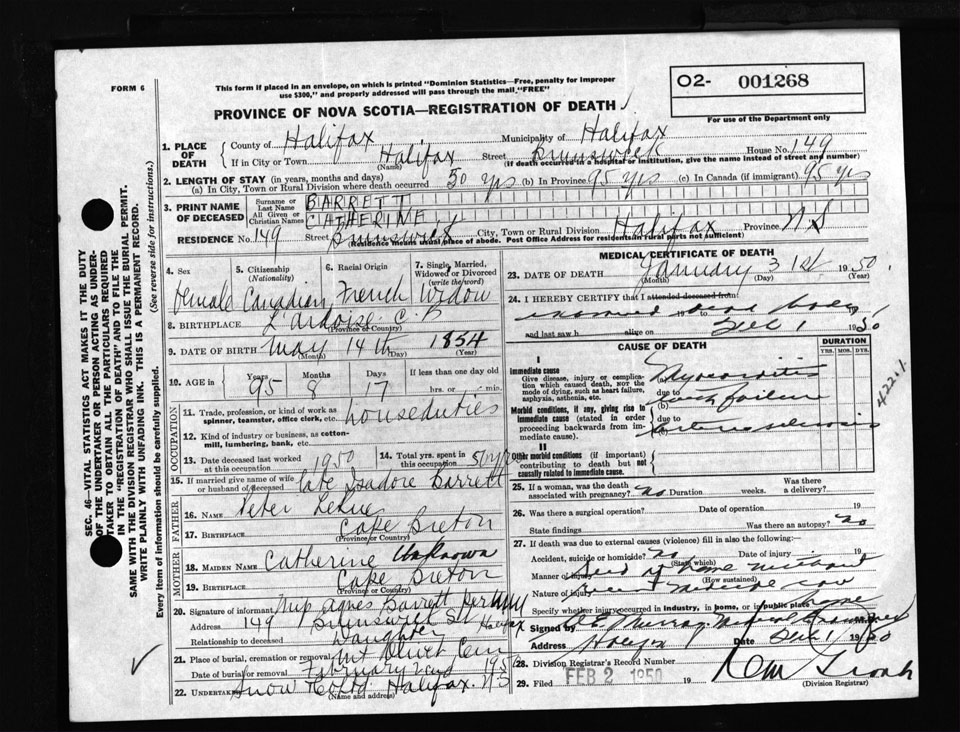 FORM 6
This form if placed in an envelope, on which is printed "Dominion Statistics—Free, penalty for improper
use $300," and properly addressed will pass through the mail, "FREE"
O2- 001268
For use of the Department only
PROVINCE OF NOVA SCOTIA—REGISTRATION OF DEATH
1. PLACE OF DEATH
County of Halifax Municipality of Halifax
If in City or Town Halifax Street Brunswick House No. 149
(Name) (If death occurred in a hospital or institution, give the name instead of street and number)
2. LENGTH OF STAY (in years, months and days)
(a) In City, Town or Rural Division where death occurred 50 yrs (b) In Province 95 yrs (c) In Canada (if immigrant) 95 yrs
3. PRINT NAME OF DECEASED
Surname or Last Name BARRETT
All Given or Christian Names CATHERINE
RESIDENCE No. 149 Street Brunswick City, Town or Rural Division Halifax Province N S
(Residence means usual place of abode. Post Office Address for residents in rural parts not sufficient)
4. Sex
female
5. Citizenship (Nationality)
Canadian
6. Racial Origin
French
7. Single, Married, Widowed or Divorced (write the word)
Widow
8. BIRTHPLACE L'ardoise C. B
(Province or Country)
9. DATE OF BIRTH May 14th 1854
(Month) (Day) (Year)
10. AGE in Years 95 Months 8 Days 17 If less than one day old
hrs. or min.
OCCUPATION
11. Trade, profession, or kind of work as spinner, teamster, office clerk, etc. houseduties
12. Kind of industry or business, as cotton-mill, lumbering, bank, etc.
13. Date deceased last worked at this occupation 1950
14. Total yrs. spent in this occupation 50 yrs
15. If married give name of wife or husband of deceased late Isadore Barrett
FATHER
16. NAME Peter
17. BIRTHPLACE Cape Breton
(Province or Country)
MOTHER
18. MAIDEN NAME Catherine Unknown
19. BIRTHPLACE Cape Breton
(Province or Country)
20. Signature of informant Agnes Barrett
Address 149 Brunswick St Halifax
Relationship to deceased Daughter
21. Place of burial, cremation or removal Mt Olivet Cem
Date of burial or removal February 2nd 1950
22. Undertaker Snow Co Ltd. Halifax. N S
(Name and address)
MEDICAL CERTIFICATE OF DEATH
23. DATE OF DEATH January 31st 1950.
(Month) (Day) (Year)
24. I HEREBY CERTIFY that I attended deceased from:
examined dead body
19 to
and last saw h alive on 1 1950
CAUSE OF DEATH
DURATION
YRS. MOS. DYS.
I
Immediate cause
Give disease, injury or complication which caused death, not the mode of dying, such as heart failure, asphyxia, asthenia, etc.
(a) Myocarditis
due to
(b) failure
Morbid conditions, if any, giving rise to immediate cause (stated in order proceeding backwards from immediate cause).
due to
(c) arteriosclerosis
422.1
II
Other morbid conditions (if important) contributing to death but not causally related to immediate cause.
25. If a woman, was the death associated with pregnancy? no Duration weeks. Was there a delivery?
26. Was there a surgical operation? Date of operation 19
State findings Was there an autopsy? no
27. If death was due to external causes (violence) fill in also the following:
Accident, suicide or homicide? no Date of injury 19
(State which)
Manner of injury Died at home without
(How sustained)
Nature of injury medical
Specify whether injury occurred in industry, in home, or in public place home
Signed by Murray Medical Examiner
Address Halifax Date 1 1950
28. Division Registrar's Record Number
29. Filed FEB 2 1950 19
(Division Registrar)
SEC. 46—VITAL STATISTICS ACT MAKES IT THE DUTY
OF THE UNDERTAKER OR PERSON ACTING AS UNDERTAKER TO OBTAIN ALL THE PARTICULARS REQUIRED
IN THE "REGISTRATION OF DEATH" AND TO FILE THE
SAME WITH THE DIVISION REGISTRAR WHO SHALL ISSUE THE BURIAL PERMIT.
WRITE PLAINLY WITH UNFADING INK. THIS IS A PERMANENT RECORD.
Every item of information should be carefully supplied. (See reverse side for instructions.)